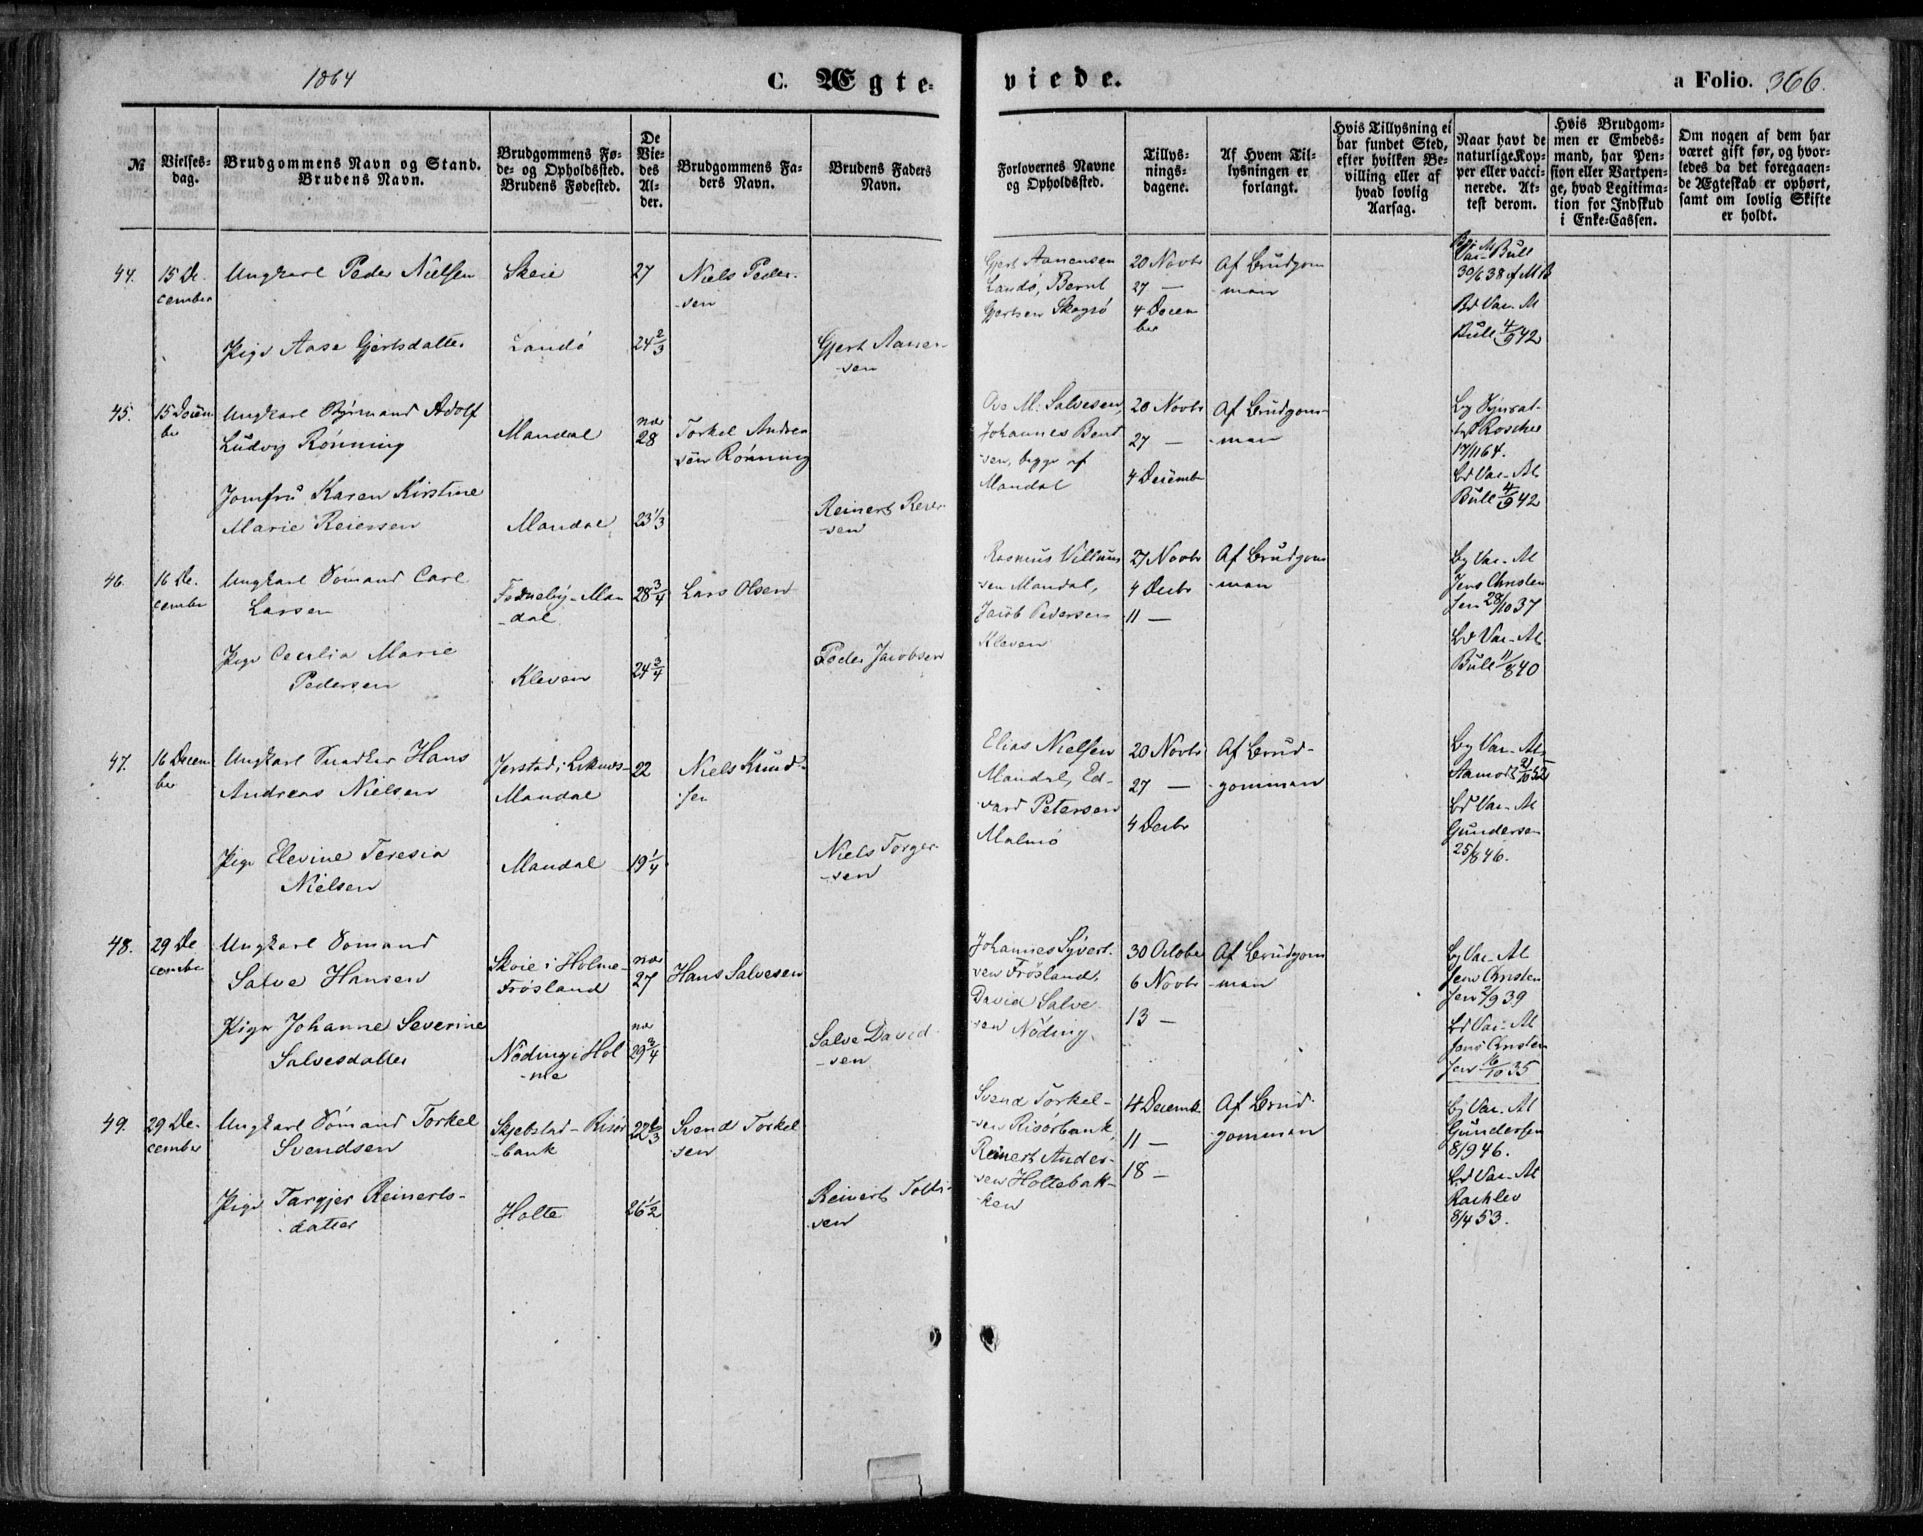 1864
C. Ægte-
viede.
a Folio. 366.
№
Vielses-
dag.
Brudgommens Navn og Stand.
Brudens Navn.
Brudgommens Fø-
de- og Opholdssted.
Brudens Fødested.
De
Vie-
des
Al-
der.
Brudgommens Fa-
ders Navn.
Brudens Faders
Navn.
Forlovernes Navne
og Opholdssted.
Tillys-
nings-
dagene.
Af Hvem Til-
lysningen er
forlangt.
Hvis Tillysning ei
har fundet Sted,
efter hvilken Be-
villing eller af
hvad lovlig
Aarsag.
Naar havt de
naturlige Kop-
per eller vacci-
nerede. At-
test derom.
Hvis Brudgom-
men er Embeds-
mand, har Pen-
sion eller Vartpen-
ge, hvad Legitima-
tion for Indskud
i Enke-Cassen.
Om nogen af dem har
været gift før, og hvor-
ledes da det foregaaen-
de Ægteskab er ophørt,
samt om lovlig Skifte
er holdt.
44.
15 De-
cember
Ungkarl Peder Nielsen
Skeie
27
Niels Peder-
-sen
Pige Aase Gjertsdatter
Landø
24 2/3
Gjert Aanen-
-sen
Gjert Aanensen
Landø, Bernt
Gjertsen Skogsø
20 Novbr
27 —
4 Decem
ber
Af Brudgom
-man
Vac. Bull
30/6 38
Bd Vac. Al
Bull 4/9 42
45.
15 Decem
ber
Ungkarl Styrmand Adolf
Ludvig Rønning
Mandal
nær
28
Torkel Andrea
sen Rønning
Jomfru Karen Kirstine
Marie Reiersen
Mandal
23 1/3
Reinert Reier-
-sen
Ove M. Salvesen,
Johannes Bent
sen, begge af
Mandal
20 Novbr
27 —
4 Decembr
Af Brudgom-
-man
Bg Synsat-
Roscher
17/11 64.
Bd Vac. Al
Bull 4/9 42
46.
16 De-
cember
Ungkarl Sømand Carl
Larsen
Fodneby-Man
-dal
28 3/4
Lars Olsen
Pige Cecilia Marie
Pedersen
Kleven
24 3/4
Peder Jacobsen
Rasmus Villum
sen Mandal,
Jacob Pedersen
Kleven
27 Novbr
4 Decbr
11 —
Af Brudgom
-man
Bg Vac. Al
Jens Christen
sen 28/10 37
Bd Vac. Al
Bull 11/8 40
47.
16 Decem
ber
Ungkarl Snedker Hans
Andreas Nielsen
Jerstad i Leknes-
Mandal
22
Niels Knud-
sen
Pige Elevine Teresia
Nielsen
Mandal
19 1/4
Niels Torger
-sen
Elias Nielsen
Mandal, Ed-
vard Petersen
Malmø
20 Novbr
27 —
4 Decbr
Af Brud-
-gomman
Bg Vac. Al
Aamodt
Bd Vac. Al
Gundersen
25/8 46.
48.
29 De
cember
Ungkarl Sømand
Salve Hansen
Skeie i Holme-
Frøsland
nær
27
Hans Salvesen
Pige Johanne Severine
Salvesdatter
Nøding i Hol
-me
nær
29 3/4
Salve David-
-sen
Johannes Syvert-
sen Frøsland,
David Salve-
sen Nøding
30 October
6 Novbr
13 —
Af Brudgom
-man
Bg Vac. Al
Jens Christen
sen 2/9 39
Bd Vac. Al
Jens Christen
sen 16/10 35
49.
29 De-
cember
Ungkarl Sømand Torkel
Svendsen
Skjebstad-Risør
-bank
22 2/3
Svend Torkel
sen
Pige Targjer Reinerts-
-datter
Holte
26 1/2
Reinert
-sen
Svend Torkel-
sen Risørbank,
Reinert Ander-
sen Holtebak-
ken
4 Decembr
11 —
18 —
Af Brud-
gomman
Bg Vac. Al
Gundersen
8/9 46.
Bd Vac. Al
Rachlev
8/4 53.